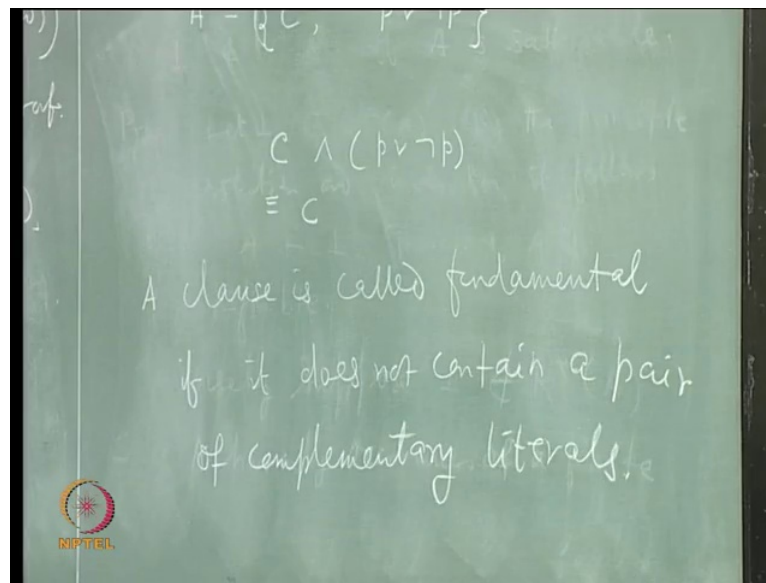 A = {C, p ∨ ¬p}
C ∧ (p ∨ ¬p)
≡ C
A clause is called fundamental
if it does not contain a pair
of complementary literals.
NPTEL